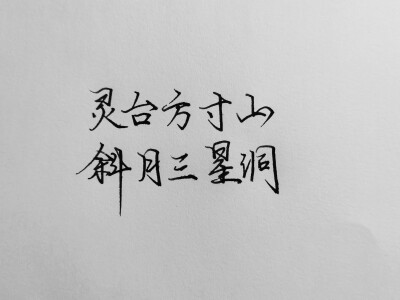 灵台方寸山
斜月三星洞